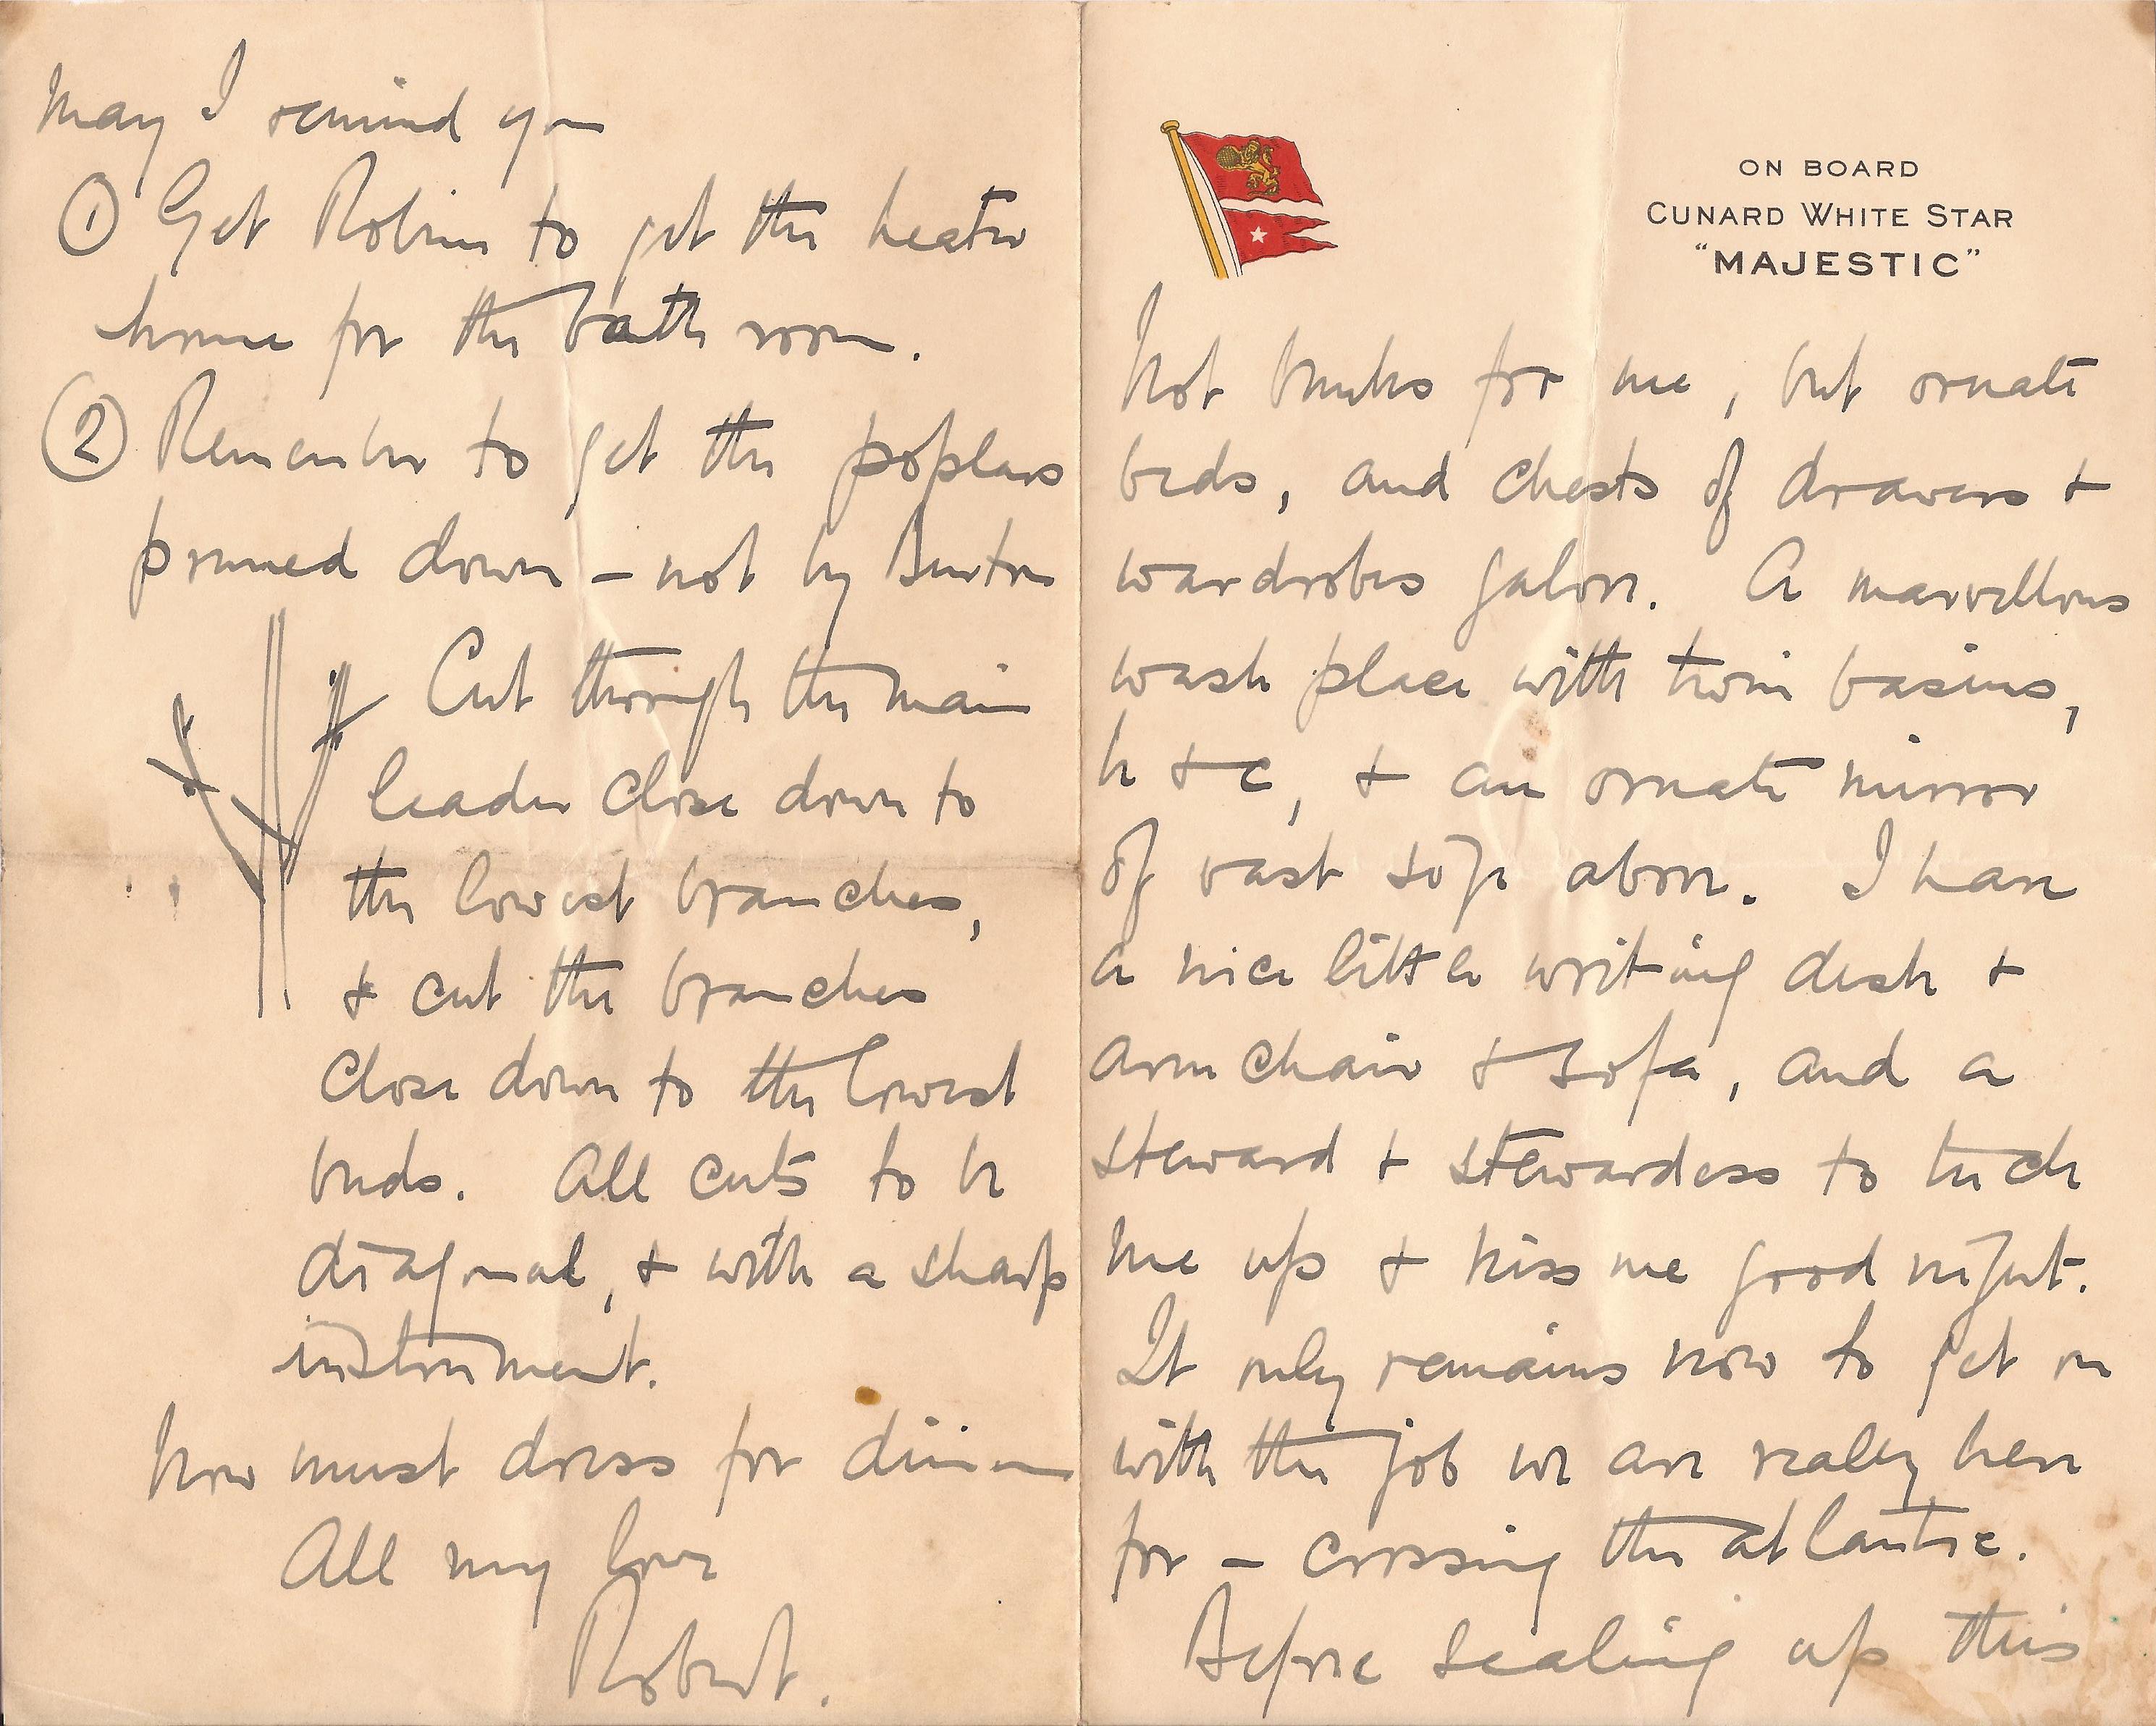 May I remind you
① Get Robin to get the heater
home for the bath room.
② Remember to get the poplars
pruned down – not by Burton
Cut through the main
leader close down to
the lowest branches,
& cut the branches
close down to the lowest
buds. All cuts to be
diagonal, & with a sharp
instrument.
Now must dress for dinner
All my love
Robert.
ON BOARD
CUNARD WHITE STAR
"MAJESTIC"
Not bunks for me, but ornate
beds, and chests of drawers &
wardrobes galore. A marvellous
wash place with twin basins,
h & c, & an ornate mirror
of vast size above. I have
a nice little writing desk &
arm chair & sofa, and a
steward & stewardess to tuck
me up & kiss me good night.
It only remains now to get on
with the job we are really here
for – crossing the atlantic.
Before sealing up this